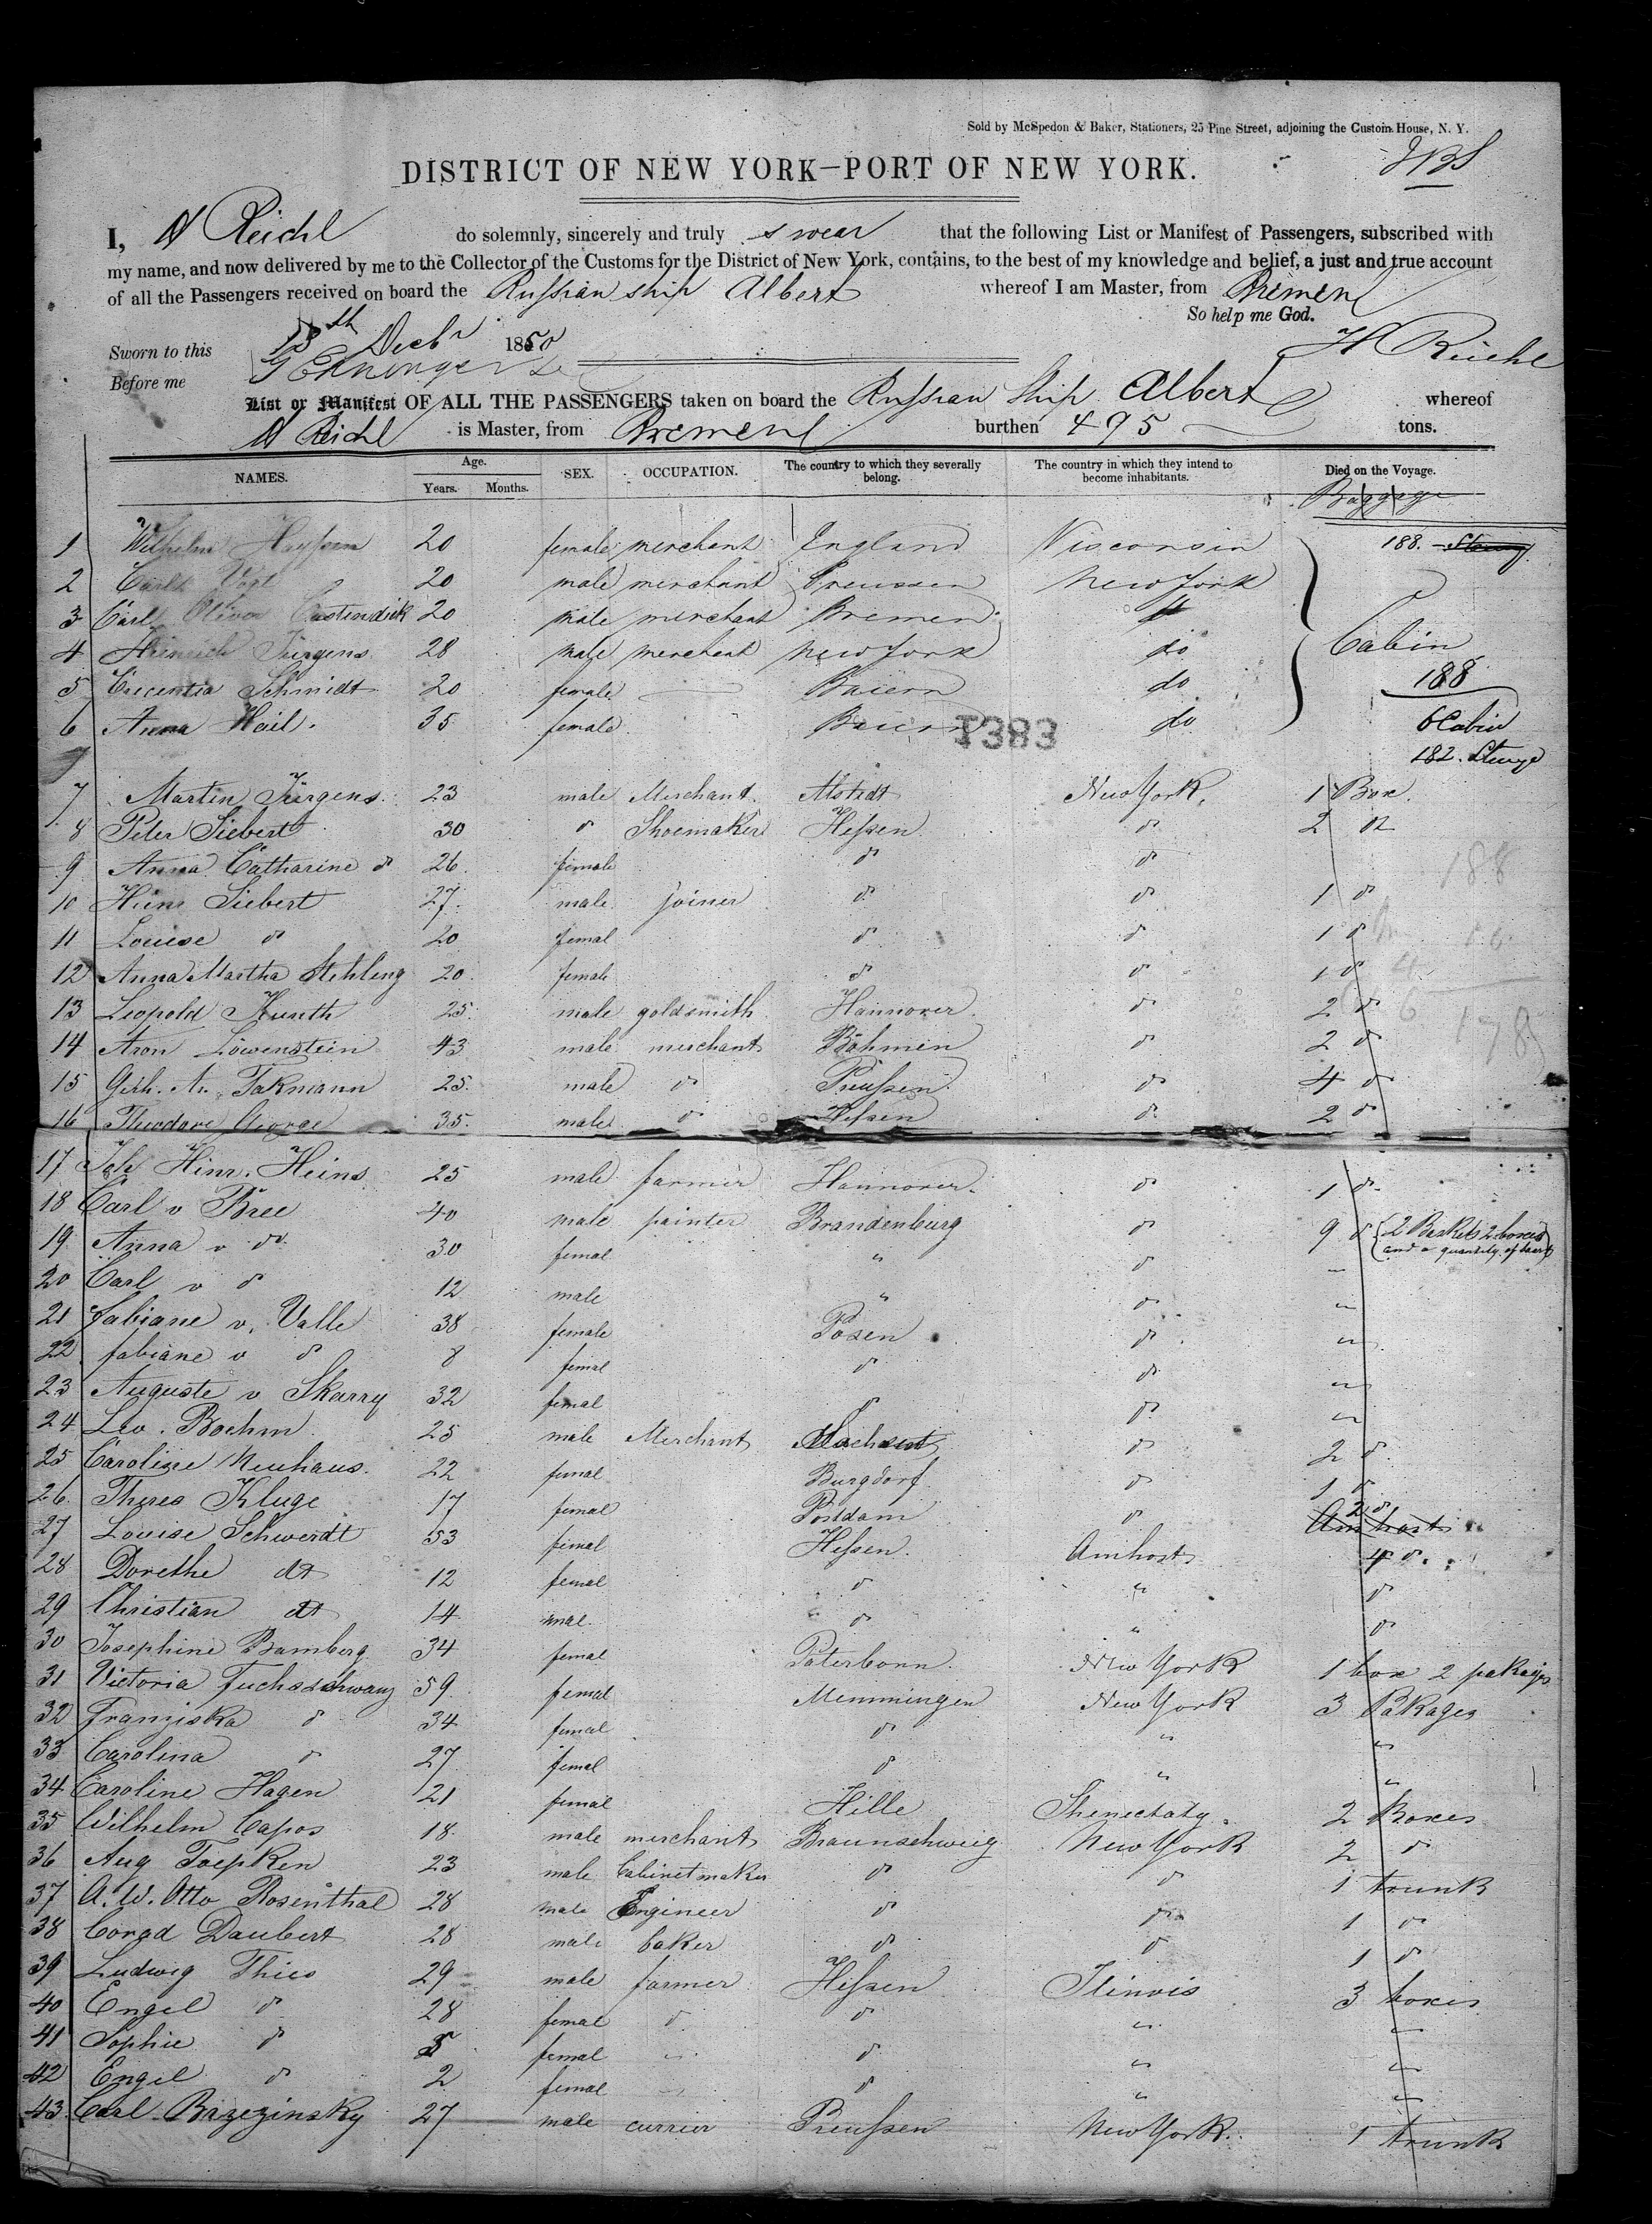 Sold by McSpedon & Baker, Stationers, 25 Pine Street, adjoining the Custom House, N. Y.
DISTRICT OF NEW YORK—PORT OF NEW YORK.
I, Reichl do solemnly, sincerely and truly swear that the following List or Manifest of Passengers, subscribed with
my name, and now delivered by me to the Collector of the Customs for the District of New York, contains, to the best of my knowledge and belief, a just and true account
of all the Passengers received on board the Russian ship Albert whereof I am Master, from Bremen
So help me God.
Sworn to this 13th Decbr 1850
Before me
List or Manifest OF ALL THE PASSENGERS taken on board the Russian Ship Albert whereof
Reichl is Master, from Bremen burthen 495 tons.
NAMES. Age. Years. Months. SEX. OCCUPATION. The country to which they severally belong. The country in which they intend to become inhabitants. Died on the Voyage.
Baggage
1 Wilhelm 20 female merchant England Wisconsin 188.
2 Carl Vogt 20 male merchant Preussen New York
3 Carl Oliver Castendick 20 male merchant Bremen
4 Heinrich Jürgens 28 male merchant New York do Cabin
5 Crecentia Schmidt 20 female Baiern do 188
6 Anna Hail. 35 female Baiern do 6 Cabin
1383
182. Steuge
7 Martin Jürgens. 23 male Merchant. Alstadt New York. 1 Box.
8 Peter Siebert 30 do Shoemaker Hessen do 2 do
9 Anna Catharine do 26. female do do
10 Hein Siebert 27. male joiner do do 1 do
11 Louise do 20 femal do do 1 do
12 Anna Martha Stehling 20. female do do 1 do
13 Leopold Kunth 25. male goldsmith Hannover do 2 do
14 Aron Löwenstein 43 male merchant Böhmen do 2 do
15 Gerh. A. Takmann 25. male do Preussen do 4 do
16 Theodore George 35. male do Hessen do 2 do
17 Joh Hinr. Heins 25 male farmer Hannover. do 1 do
18 Carl v Bree 40 male painter Brandenburg do 9 do (2 Baskets 2 boxes
19 Anna v do 30 femal " do and a quantity of
20 Carl v do 12 male " do "
21 Fabiane v. Valle 38 female Posen do "
22 fabiane v do 8 femal do do "
23 Auguste v Skarry 32 femal do do "
24 Leo. Boehm 25 male Merchant do 2 do
25 Caroline Neuhaus. 22 femal Burgdorf do 1 do
26 Theres Kluge 17 femal Postdam do 2 do
27 Louise Schwerdt 53 femal Hessen. Amhost 4 do
28 Dorethe dt 12 femal do " do
29 Christian dt 14 mal. do " do
30 Josephine Bamberg 34 femal Paterborn. New York 1 box 2 pakages
31 Victoria Fuchsschwanz 59 femal Memmingen New York 3 Pakages
32 Franziska do 34 femal do " "
33 Carolina do 27 femal do " "
34 Caroline Hagen 21 femal Hille Shenectaty. 2 Boxes
35 Wilhelm Capos 18. male merchant Braunschweig New York 2 do
36 Aug Toepken 23 male Cabinetmaker do do 1 trunk
37 A. W. Otto Rosenthal 28 male Engineer do do 1 do
38 Conrad Daubert 28 male baker do do 1 do
39 Ludwig Thies 29 male farmer Hessen Ilinois 3 boxes
40 Engel do 28 femal do do " "
41 Sophie do femal " do " "
42 Engel do 2 femal " do " "
43 Carl Brzezinsky 27 male currier Preussen New York. 1 trunk